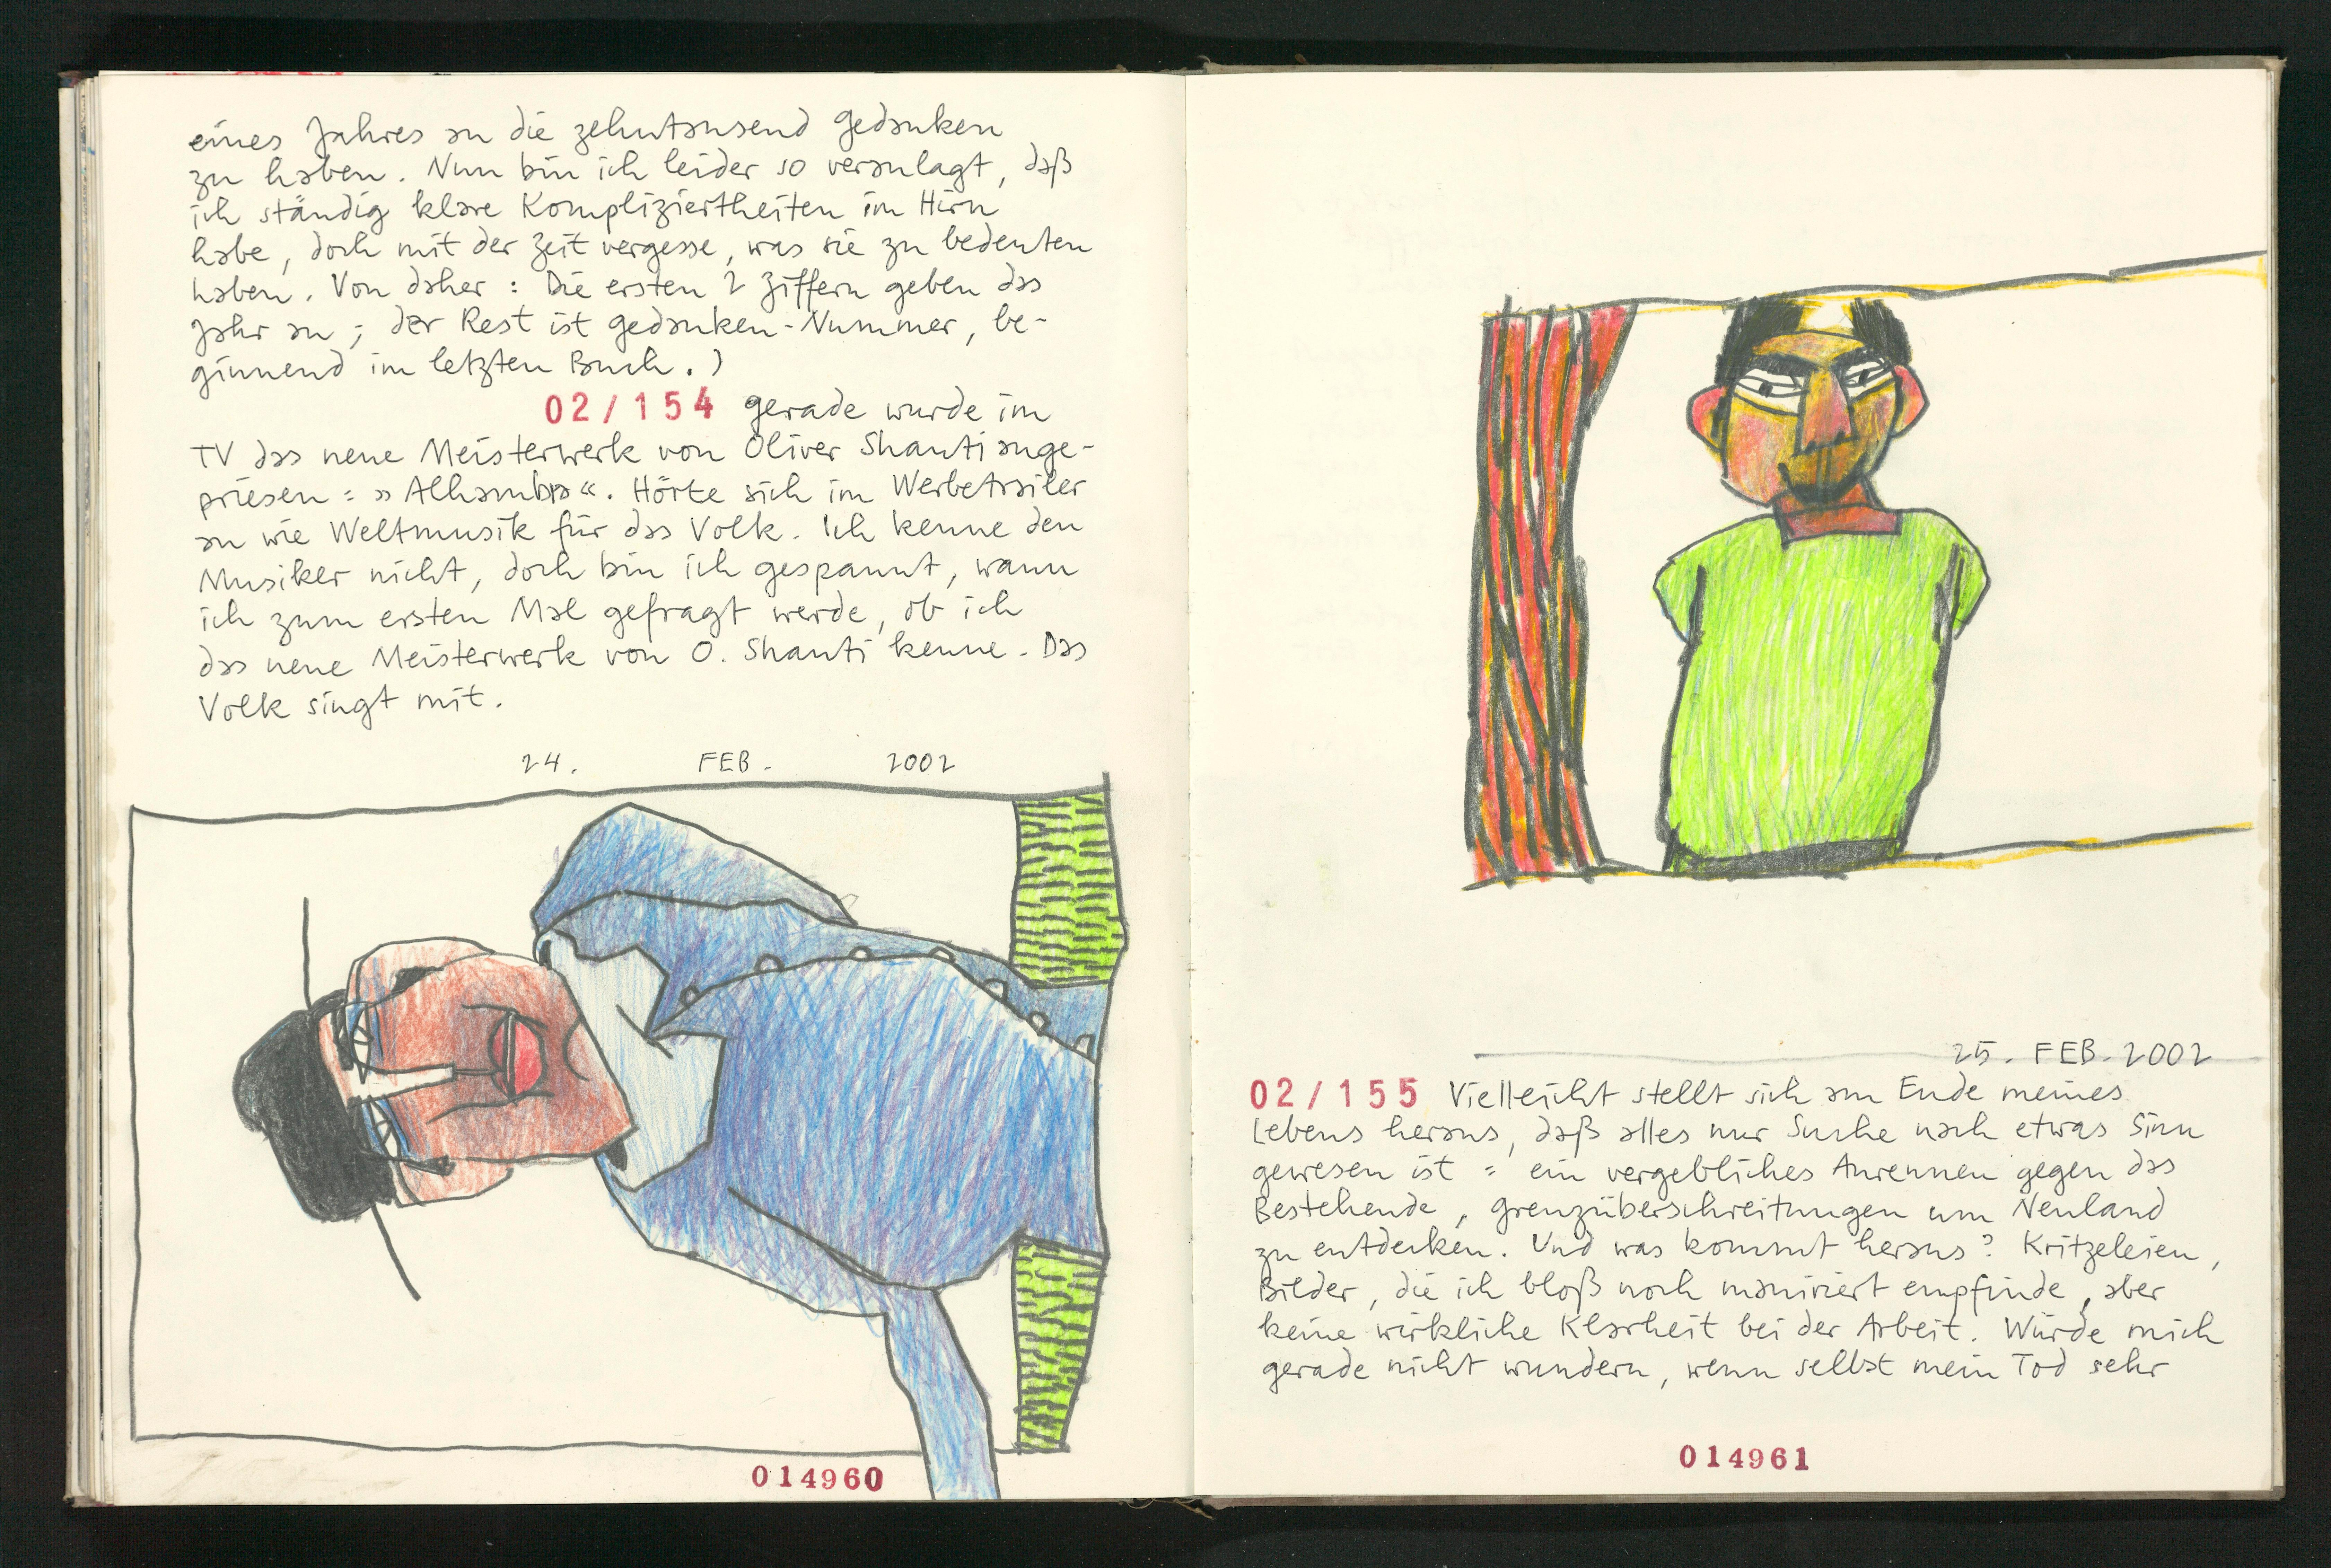 eines Jahres an die zehntausend Gedanken
zu haben. Nun bin ich leider so veranlagt, daß
ich ständig klare Kompliziertheiten im Hirn
habe, doch mit der Zeit vergesse, was sie zu bedeuten
haben. Von daher: Die ersten 2 Ziffern geben das
Jahr an; der Rest ist Gedanken-Nummer, be-
ginnend im letzten Buch.)
02/154 Gerade wurde im
TV das neue Meisterwerk von Oliver Shanti ange-
priesen: »Alhambra«. Hörte sich im Werbetrailer
an wie Weltmusik für das Volk. Ich kenne den
Musiker nicht, doch bin ich gespannt, wann
ich zum ersten Mal gefragt werde, ob ich
das neue Meisterwerk von O. Shanti kenne. Das
Volk singt mit.
24. FEB. 2002
014960
25. FEB. 2002
02/155 Vielleicht stellt sich am Ende meines
Lebens heraus, daß alles nur Suche nach etwas Sinn
gewesen ist: ein vergebliches Anrennen gegen das
Bestehende, Grenzüberschreitungen um Neuland
zu entdecken. Und was kommt heraus? Kritzeleien,
Bilder, die ich bloß noch manieriert empfinde, aber
keine wirkliche Klarheit bei der Arbeit. Würde mich
gerade nicht wundern, wenn selbst mein Tod sehr
014961